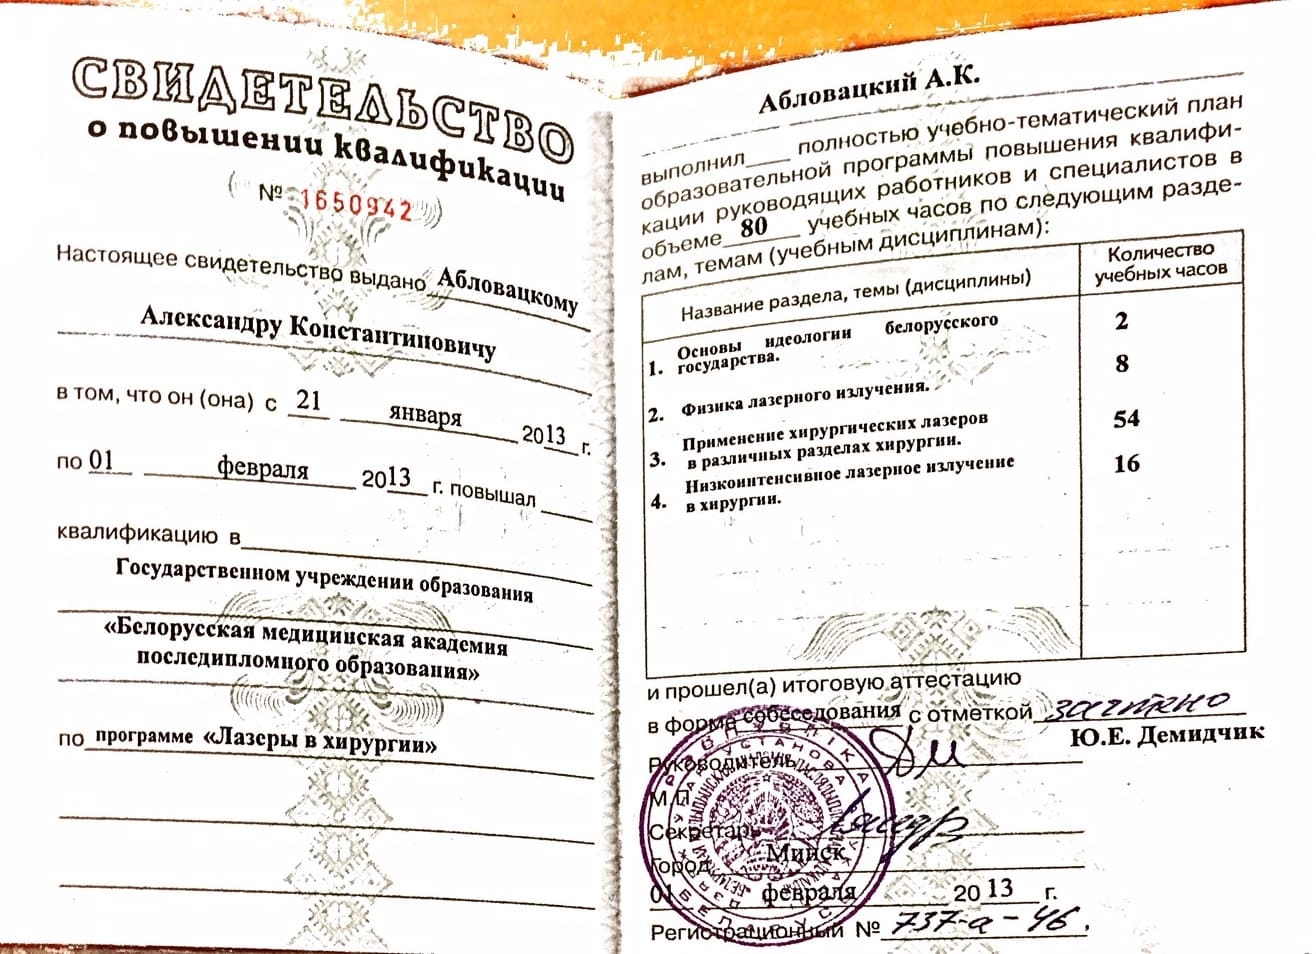 СВИДЕТЕЛЬСТВО
о повышении квалификации
№ 1650942
Настоящее свидетельство выдано Абловацкому
Александру Константиновичу
в том, что он (она) с 21 января 2013 г.
по 01 февраля 2013 г. повышал
квалификацию в
Государственном учреждении образования
«Белорусская медицинская академия
последипломного образования»
по программе «Лазеры в хирургии»
Абловацкий А.К.
выполнил полностью учебно-тематический план
образовательной программы повышения квалифи-
кации руководящих работников и специалистов в
объеме 80 учебных часов по следующим разде-
лам, темам (учебным дисциплинам):
Название раздела, темы (дисциплины)
Количество
учебных часов
1. Основы идеологии белорусского
государства.
2
2. Физика лазерного излучения.
8
3. Применение хирургических лазеров
в различных разделах хирургии.
54
4. Низкоинтенсивное лазерное излучение
в хирургии.
16
и прошел(а) итоговую аттестацию
в форме собеседования с отметкой зачтено
Ю.Е. Демидчик
Руководитель
М.П.
Секретарь
Город Минск
01 февраля 2013 г.
Регистрационный № 737-а-46.